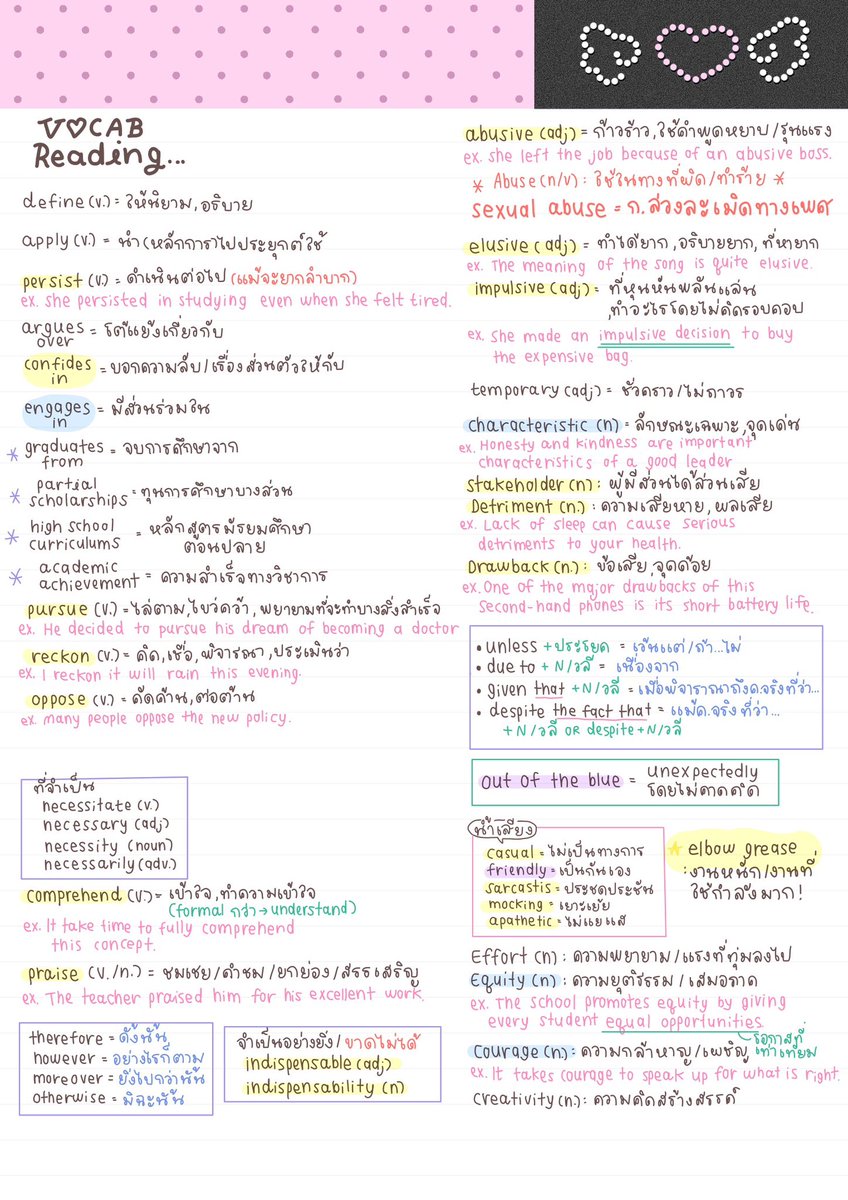 VOCAB
Reading...
define (v.) = ให้นิยาม, อธิบาย
apply (v.) = นำ(หลักการ)ไปประยุกต์ใช้
persist (v.) = ดำเนินต่อไป (แม้จะยากลำบาก)
ex. she persisted in studying even when she felt tired.
argues over = โต้แย้งเกี่ยวกับ
confides in = บอกความลับ/เรื่องส่วนตัวให้กับ
engages in = มีส่วนร่วมใน
* graduates from = จบการศึกษาจาก
* partial scholarships = ทุนการศึกษาบางส่วน
* high school curriculums = หลักสูตรมัธยมศึกษา
ตอนปลาย
* academic achievement = ความสำเร็จทางวิชาการ
pursue (v.) = ไล่ตาม, ไขว่คว้า, พยายามที่จะทำบางสิ่งสำเร็จ
ex. He decided to pursue his dream of becoming a doctor
reckon (v.) = คิด, เชื่อ, พิจารณา, ประเมินว่า
ex. I reckon it will rain this evening.
oppose (v.) = คัดค้าน, ต่อต้าน
ex. many people oppose the new policy.
ที่จำเป็น
necessitate (v.)
necessary (adj)
necessity (noun)
necessarily (adv.)
comprehend (v.) = เข้าใจ, ทำความเข้าใจ
(formal กว่า → understand)
ex. It take time to fully comprehend
this concept.
praise (v./n.) = ชมเชย / คำชม / ยกย่อง / สรรเสริญ
ex. The teacher praised him for his excellent work.
therefore = ดังนั้น
however = อย่างไรก็ตาม
moreover = ยิ่งไปกว่านั้น
otherwise = มิฉะนั้น
จำเป็นอย่างยิ่ง/ขาดไม่ได้
indispensable (adj)
indispensability (n)
abusive (adj) = ก้าวร้าว, ใช้คำพูดหยาบ / รุนแรง
ex. she left the job because of an abusive boss.
* Abuse (n/v) : ใช้ในทางที่ผิด/ทำร้าย *
sexual abuse = ก.ล่วงละเมิดทางเพศ
elusive (adj) = ทำได้ยาก, อธิบายยาก, ที่หายาก
ex. The meaning of the song is quite elusive.
impulsive (adj) = ที่หุนหันพลันแล่น
, ทำอะไรโดยไม่คิดรอบคอบ
ex. She made an impulsive decision to buy
the expensive bag.
temporary (adj) = ชั่วคราว / ไม่ถาวร
characteristic (n) = ลักษณะเฉพาะ, จุดเด่น
ex. Honesty and kindness are important
characteristics of a good leader
stakeholder (n) : ผู้มีส่วนได้ส่วนเสีย
Detriment (n.) : ความเสียหาย, ผลเสีย
ex. Lack of sleep can cause serious
detriments to your health.
Drawback (n.) : ข้อเสีย, จุดด้อย
ex. One of the major drawbacks of this
second-hand phones is its short battery life.
• unless + ประโยค = เว้นแต่ / ถ้า...ไม่
• due to + N/วลี = เนื่องจาก
• given that + N/วลี = เมื่อพิจารณาถึงค.จริงที่ว่า...
• despite the fact that = แม้ค.จริงที่ว่า...
+ N/วลี OR despite + N/วลี
out of the blue = unexpectedly
โดยไม่คาดคิด
น้ำเสียง
casual = ไม่เป็นทางการ
friendly = เป็นกันเอง
sarcastis = ประชดประชัน
mocking = เยาะเย้ย
apathetic = ไม่แยแส
elbow grease
: งานหนัก/งานที่
ใช้กำลังมาก!
Effort (n) : ความพยายาม / แรงที่ทุ่มลงไป
Equity (n) : ความยุติธรรม / เสมอภาค
ex. The school promotes equity by giving
every student equal opportunities.
โอกาสที่
เท่าเทียม
Courage (n) : ความกล้าหาญ / เผชิญ
ex. It takes courage to speak up for what is right.
Creativity (n.) : ความคิดสร้างสรรค์